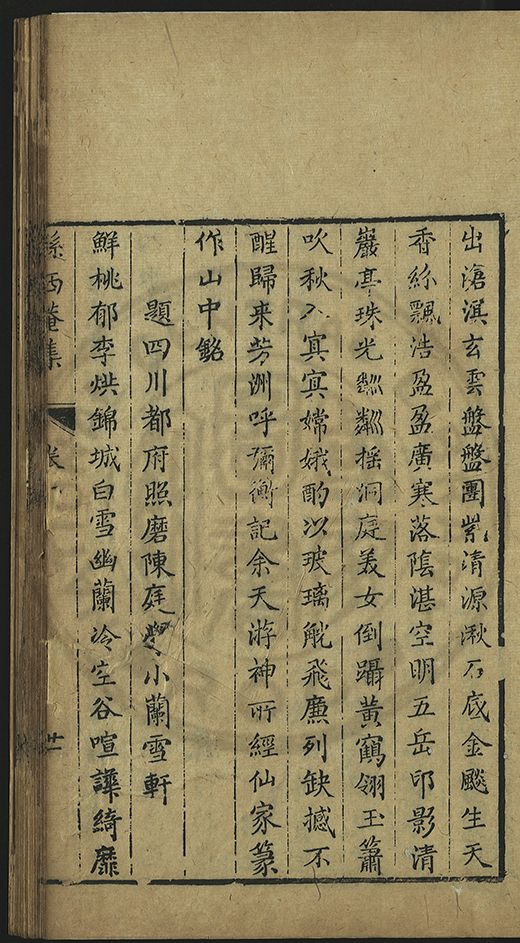 出滄溟玄雲盤盤團紫清源湫石底金飈生天
香絲飄浩盈盈廣寒落陰湛空明五岳印影清
巖亭珠光粼粼搖洞庭美女倒躡黃鶴翎玉簫
吹秋入冥冥嫦娥酌以玻璃觥飛廉列缺撼不
醒歸来芳洲呼禰衡記余天游神所經仙家篆
作山中銘
題四川都府照磨陳庭學小蘭雪軒
鮮桃郁李烘錦城白雪幽蘭冷空谷喧譁綺靡
孫西菴集
卷
廿